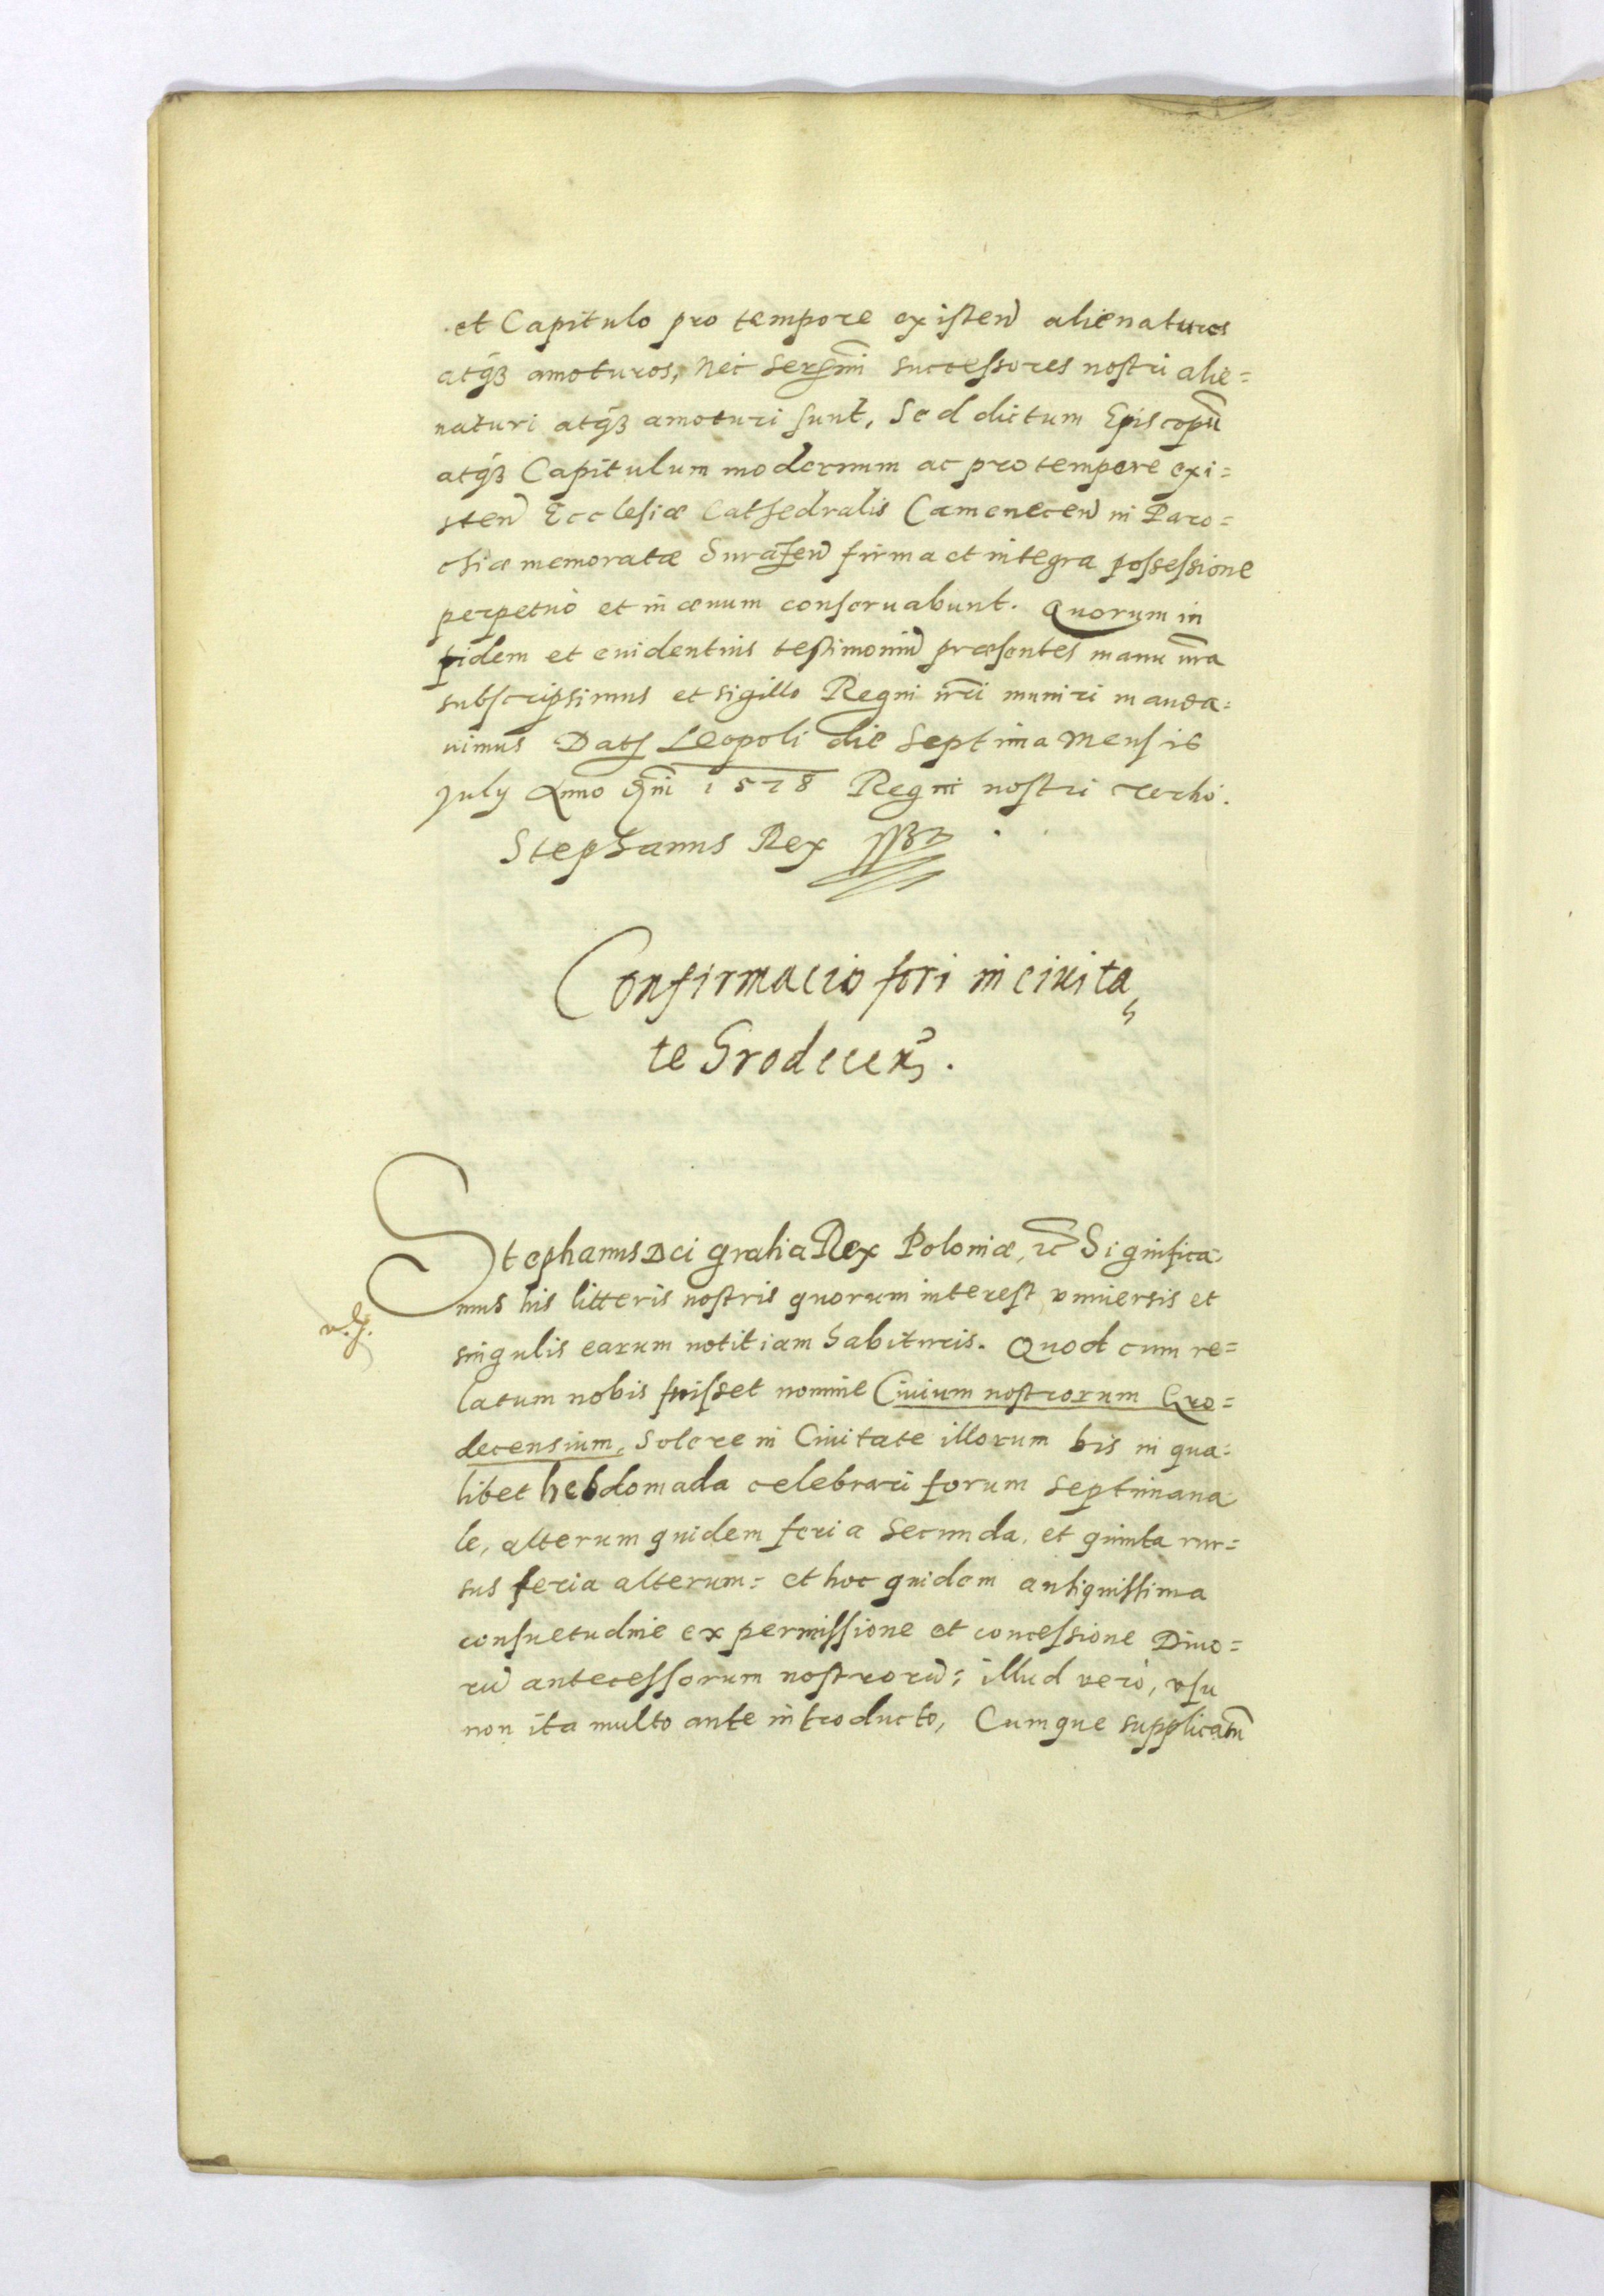 et Capitulo pro tempore existen̄ alienaturos
atq̃ꝫ amoturos, nec Ser̃mi successores nostri alie=
naturi atq̃ꝫ amoturi sunt, Sed dictum Episcopū
atq̃ꝫ Capitulum modernum ac pro tempore exi=
sten̄ Ecclesiæ Cathedralis Camenecen̄ in Paro=
chiæ memoratæ firma et integra possessione
perpetuò et in æuum conseruabunt. Quorum in
fidem et euidentius testimoniū præsentes manu nr̄a
subscripsimus et sigillo Regni nr̄i muniri manda=
uimus Datſ Leopoli die Septima Mensis
July Anno Dn̄i 1578 Regni nostri tertio.
Stephanus Rex
Confirmacio fori in ciuita
te Grodecen̄.
Stephanus Dei gratia Rex Poloniæ, ꝛc̄ Significa=
mus his litteris nostris quorum interest vniuersis et
singulis earum notitiam habituris. Quod cum re=
latum nobis fuisset nomine Ciuium nostrorum Gro=
decensium, Solere in Ciuitate illorum bis in qua=
libet hebdomada celebrari forum septimana
le, alterum quidem feria Secunda, et quinta rur=
sus feria alterum= et hoc quidem antiquissima
consuetudine ex permissione et concessione Diuo=
rū antecessorum nostrorū: illud verò, vsu
non ita multo ante introducto, Cumque supplicatū